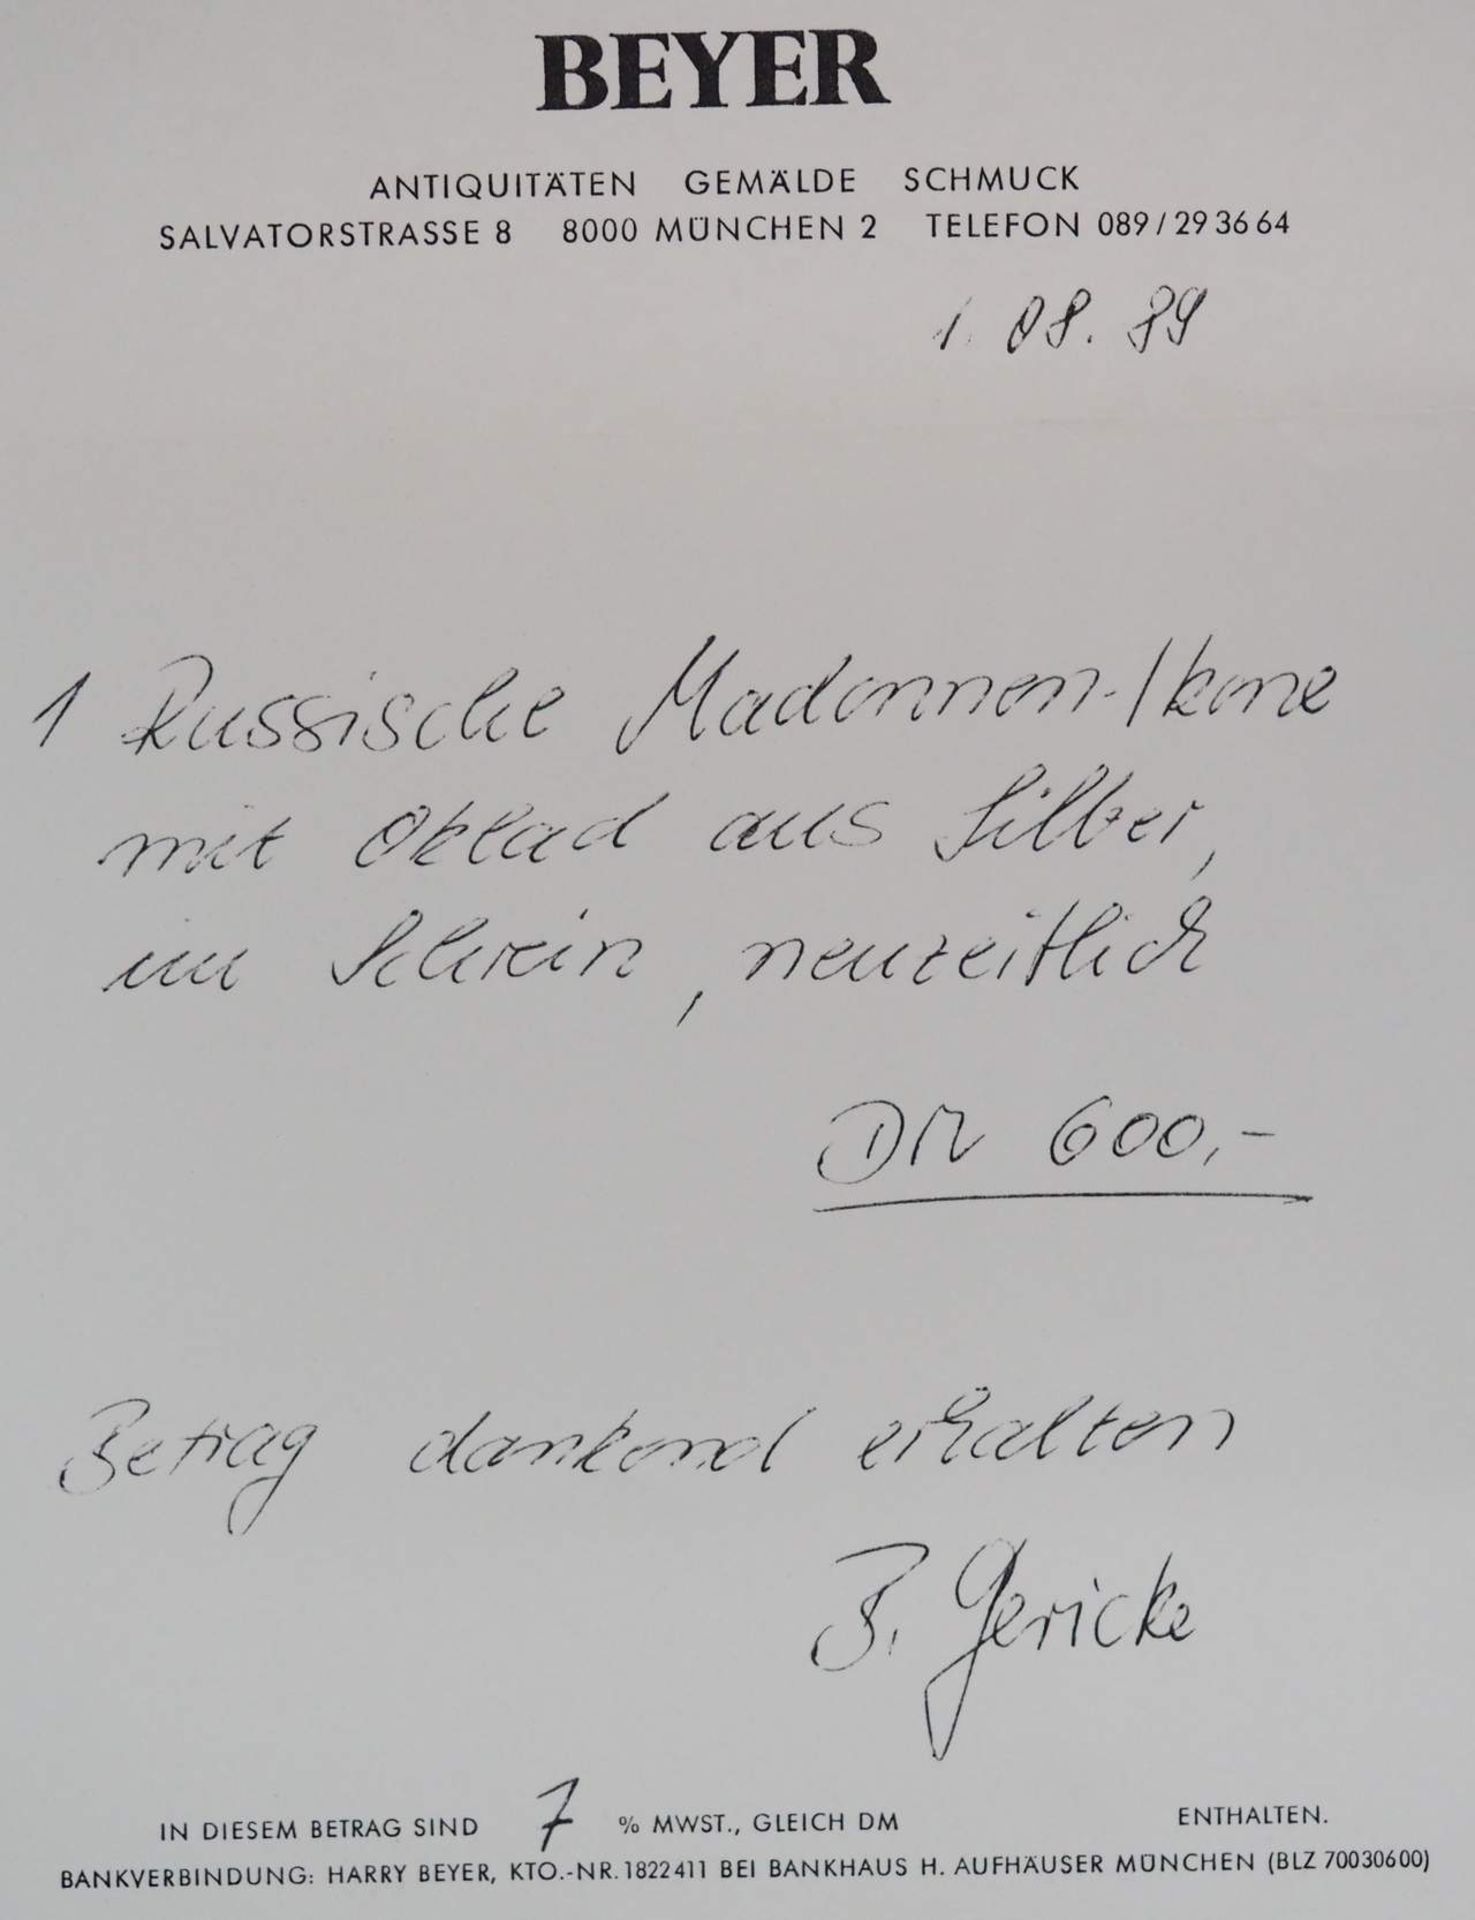 BEYER
ANTIQUITÄTEN GEMÄLDE SCHMUCK
SALVATORSTRASSE 8 8000 MÜNCHEN 2 TELEFON 089/293664
1. 08. 89
1 Russische Madonnen-Ikone
mit Oklad aus Silber,
im Schrein, neuzeitlich
DM 600,-
Betrag dankend erhalten
B. Gericke
IN DIESEM BETRAG SIND 7 % MWST., GLEICH DM ENTHALTEN.
BANKVERBINDUNG: HARRY BEYER, KTO.-NR. 1822411 BEI BANKHAUS H. AUFHÄUSER MÜNCHEN (BLZ 70030600)